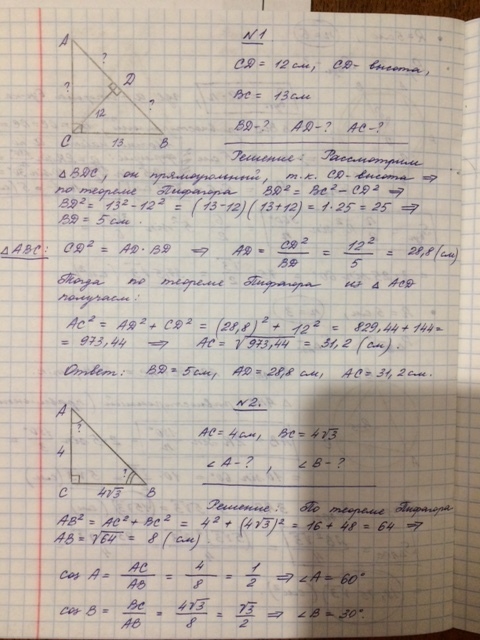 N1
A
?
D
?
?
12
C
13
B
CD = 12 см; CD - высота,
BC = 13 см
BD-? AD-? AC-?
Решение: Рассмотрим
△BDC, он прямоугольный, т.к. CD-высота ⇒
по теореме Пифагора BD² = BC² - CD² ⇒
BD² = 13² - 12² = (13-12)(13+12) = 1·25 = 25 ⇒
BD = 5 см.
△ABC: CD² = AD·BD ⇒ AD = CD²/BD = 12²/5 = 28,8 (см)
Тогда по теореме Пифагора из △ACD
получаем:
AC² = AD² + CD² = (28,8)² + 12² = 829,44 + 144 =
= 973,44 ⇒ AC = √973,44 = 31,2 (см).
Ответ: BD = 5 см, AD = 28,8 см, AC = 31,2 см.
N2.
A
?
4
?
C
4√3
B
AC = 4 см, BC = 4√3
∠A-?, ∠B-?
Решение: По теореме Пифагора
AB² = AC² + BC² = 4² + (4√3)² = 16 + 48 = 64 ⇒
AB = √64 = 8 (см)
cos A = AC/AB = 4/8 = 1/2 ⇒ ∠A = 60°
cos B = BC/AB = 4√3/8 = √3/2 ⇒ ∠B = 30°.